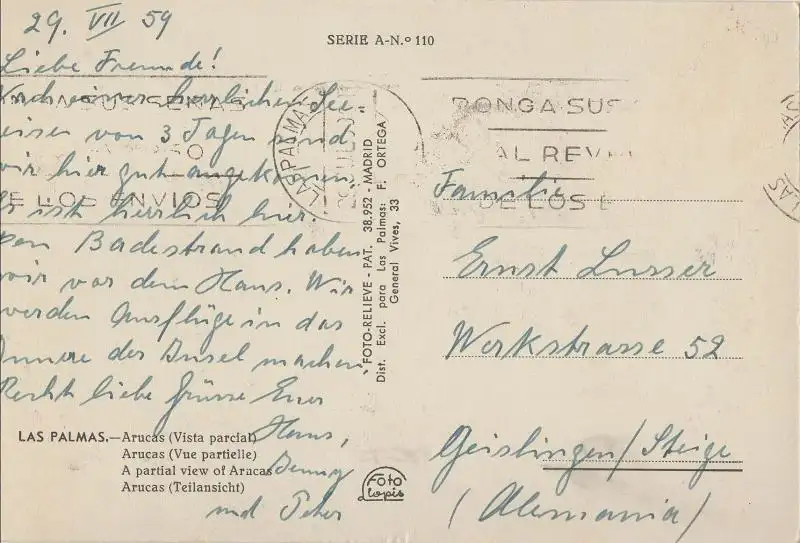 29. VII 59
SERIE A-N.º 110
Liebe Freunde!
Nach einer herrlichen See-
reisen von 3 Tagen sind
wir hier gut angekommen.
Es ist herrlich hier.
Den Badestrand haben
wir vor dem Haus. Wir
werden Ausflüge in das
Innere der Insel machen.
Recht liebe Grüsse Euer
Hans,
und Peter
LAS PALMAS.—Arucas (Vista parcial)
Arucas (Vue partielle)
A partial view of Arucas
Arucas (Teilansicht)
LAS PALMAS
DE LOS ENVIOS
FOTO-RELIEVE - PAT. 38.952 - MADRID
Dist. Excl. para Las Palmas: F. ORTEGA
General Vives, 33
Foto
PONGA SUS
AL REV
DE LOS E
LAS
Familie
Ernst Lusser
Werkstrasse 52
Geislingen/Steige
(Alemania)